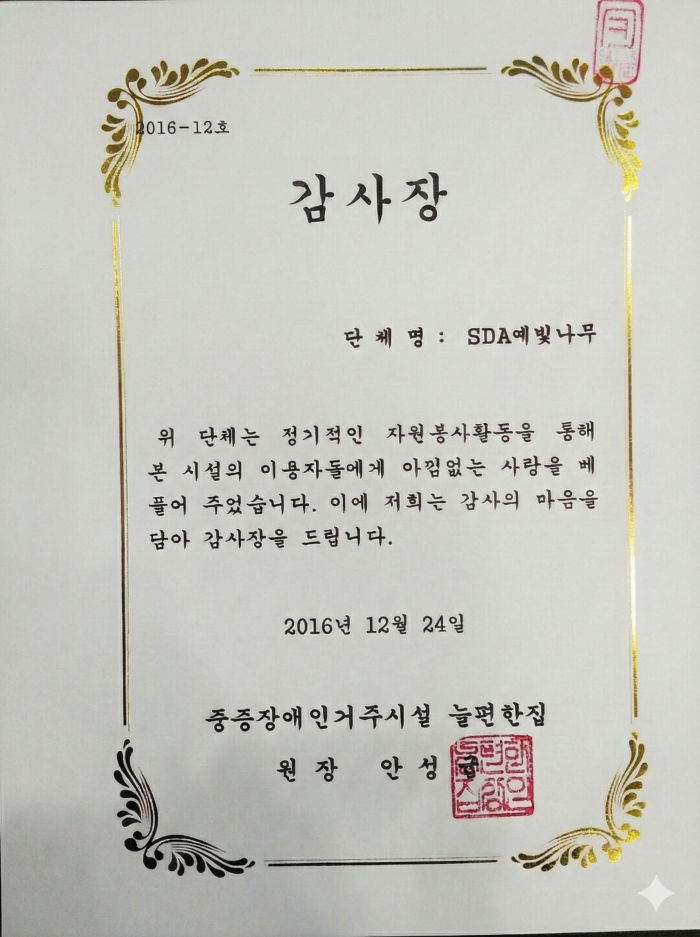 2016-12호
감사장
단 체 명 : SDA예빛나무
위 단체는 정기적인 자원봉사활동을 통해
본 시설의 이용자들에게 아낌없는 사랑을 베
풀어 주었습니다. 이에 저희는 감사의 마음을
담아 감사장을 드립니다.
2016년 12월 24일
중증장애인거주시설 늘편한집
원 장 안 성